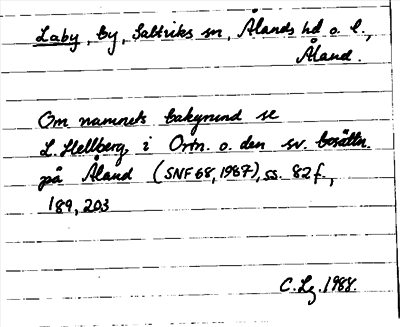 Laby, by, Saltviks sn, Ålands hd o. l.,
Åland.
Om namnets bakgrund se
L. Hellberg, i Ortn. o. den sv. bosättn.
på Åland (SNF 68, 1987), ss. 82 f.,
189, 203
C. Lg. 1988.